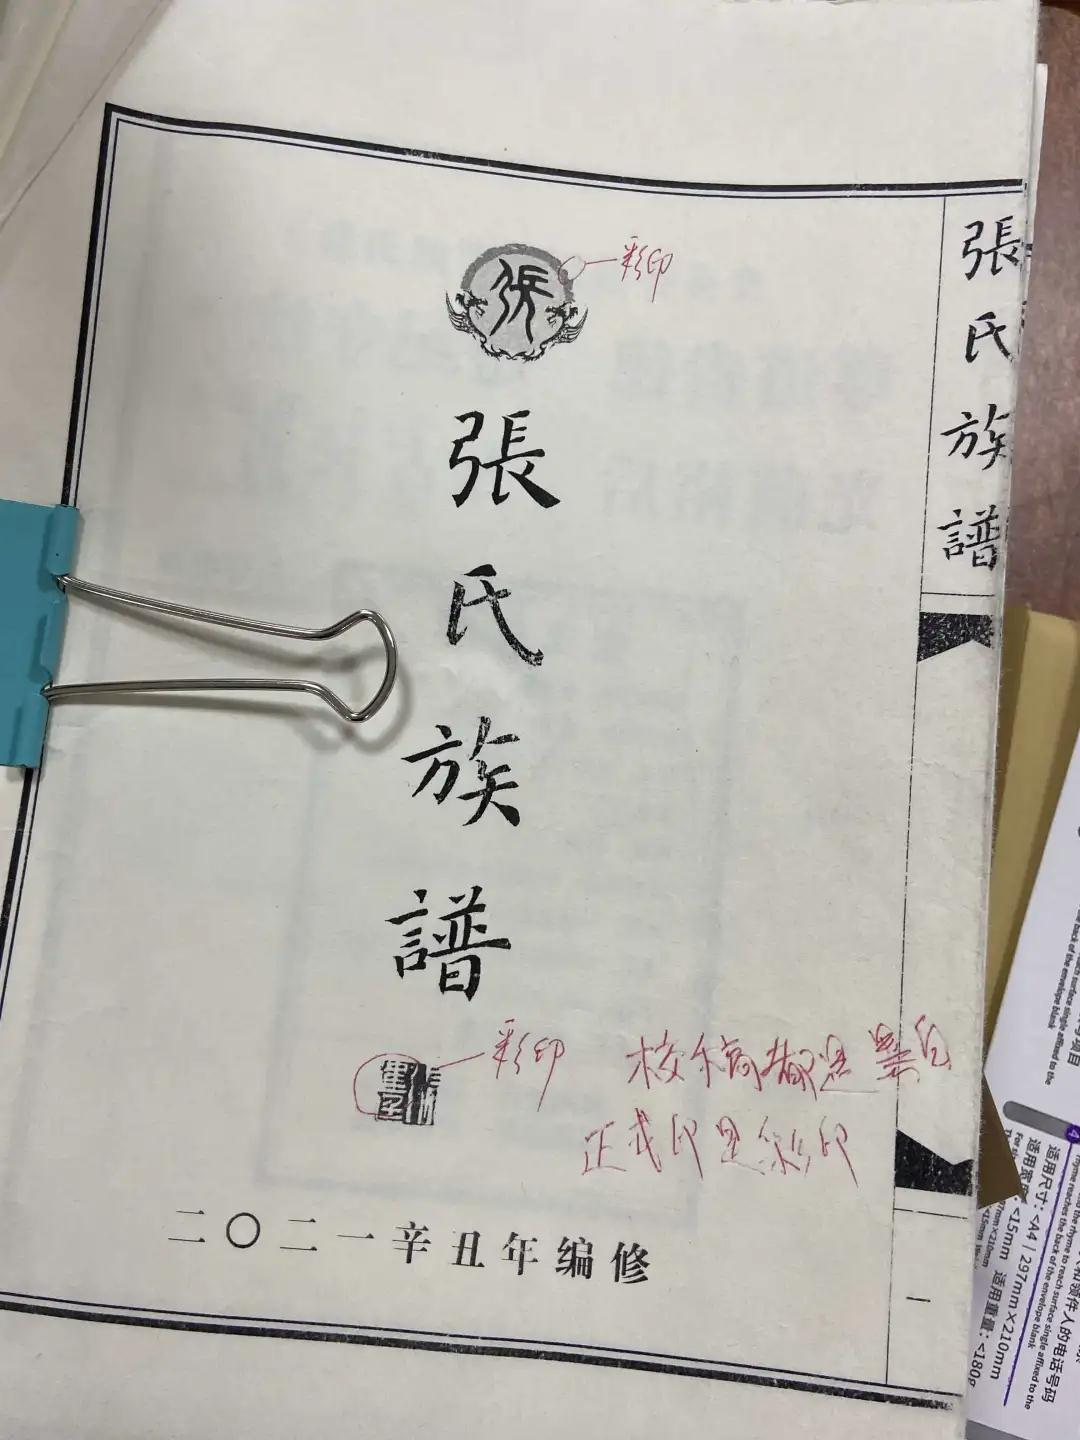 張
彩印
張氏族譜
彩印
校稿都是黑白
正式印是彩印
二〇二一辛丑年编修
張氏族譜
一
the back of the envelope blank
reach surface single affixed to the
的电话号码
适用尺寸：<A4 | 297mm×210mm
<15mm 适用重量：<180g